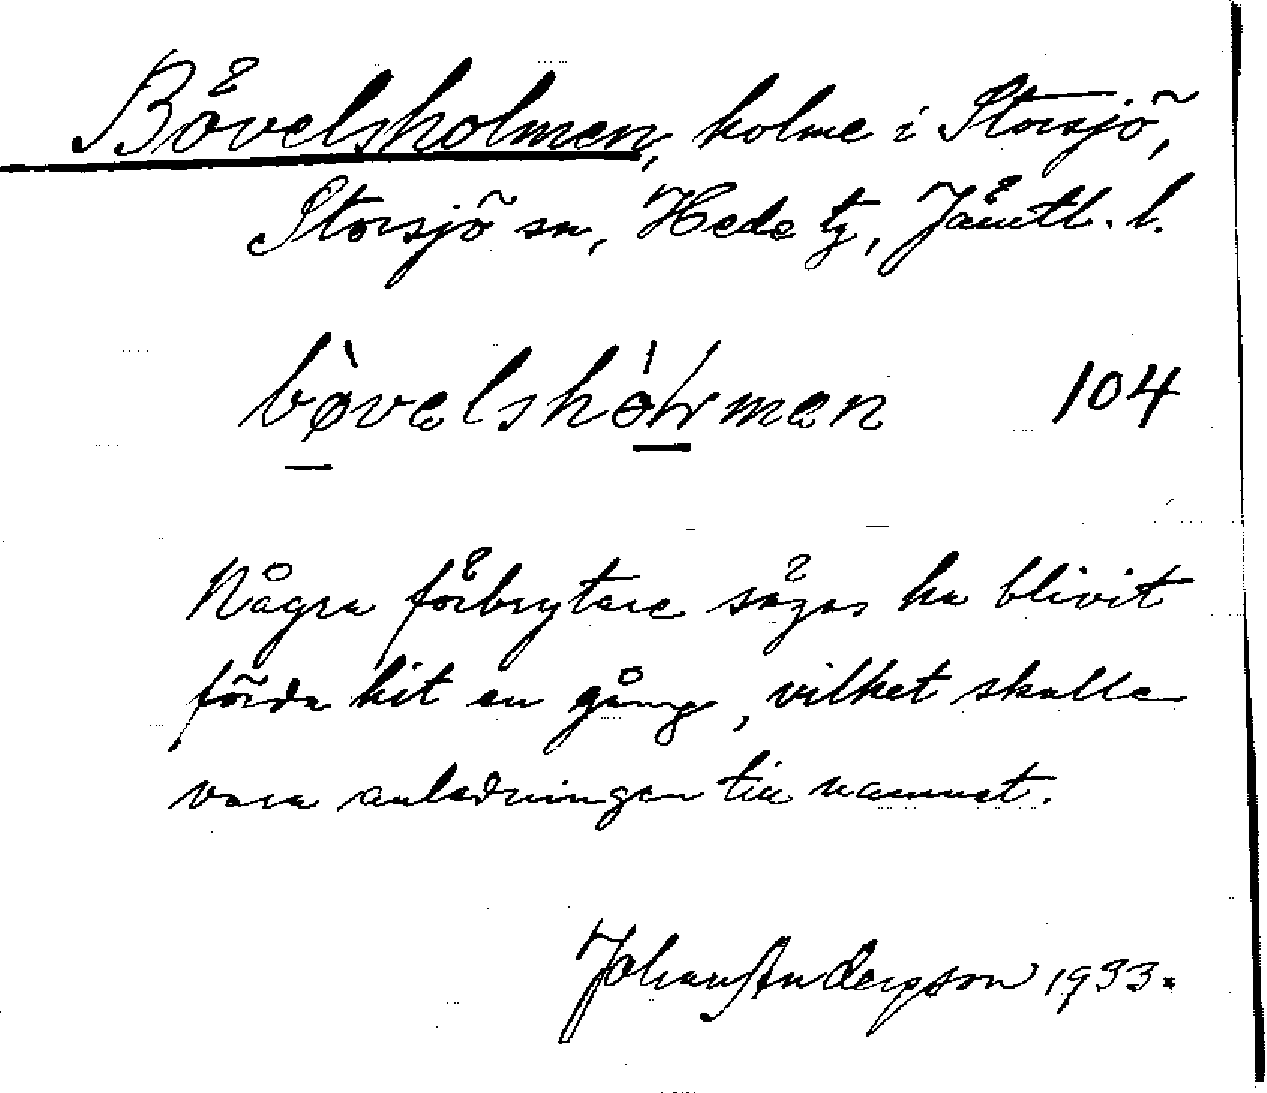 Bövelsholmen, holme i Storsjö,
Storsjö sn, Hede tg, Jämtl. l.
bøvelshołmen 104
Några förbrytare sägas ha blivit
förda hit en gång, vilket skulle
vara anledningen till namnet.
Johan Andersson 1933.